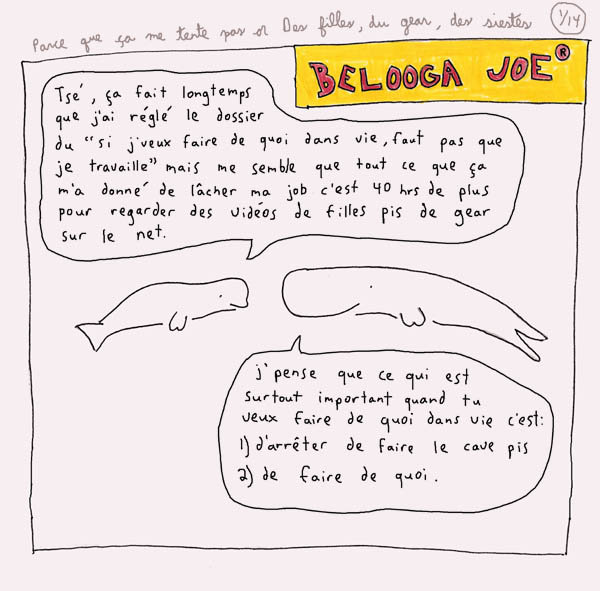 Parce que ça me tente pas or Des filles, du gear, des siestes
1/14
BELOOGA JOE ®
Tsé, ça fait longtemps
que j'ai réglé le dossier
du "si j'veux faire de quoi dans vie, faut pas que
je travaille" mais me semble que tout ce que ça
m'a donné de lâcher ma job c'est 40 hrs de plus
pour regarder des vidéos de filles pis de gear
sur le net.
j'pense que ce qui est
surtout important quand tu
veux faire de quoi dans vie c'est:
1) d'arrêter de faire le cave pis
2) de faire de quoi.